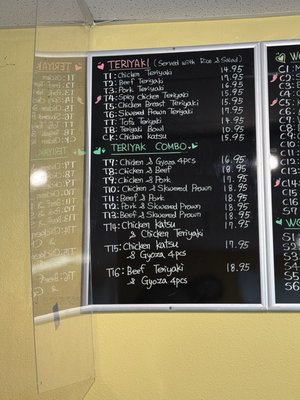 TERIYAKI (Served with Rice & Salad)
T1: Chicken Teriyaki 14.95
T2: Beef Teriyaki 17.95
T3: Pork Teriyaki 16.95
T4: Spicy Chicken Teriyaki 15.95
T5: Chicken Breast Teriyaki 15.95
T6: Skewered Prawn Teriyaki 17.95
TT: Tofu Teriyaki 14.95
TB: Teriyaki Bowl
CK: Chicken Katsu 15.95
TERIYAKI COMBO
T7: Chicken & Gyoza 4pcs 16.95
T8: Chicken & Beef 18.95
T9: Chicken & Pork 17.95
T10: Chicken & Skewered Prawn 18.95
T11: Beef & Pork 18.95
T12: Pork & Skewered Prawn 18.95
T13: Beef & Skewered Prawn 18.95
T14: Chicken Katsu 17.95
& Chicken Teriyaki
T15: Chicken Katsu 17.95
& Gyoza 4pcs
T16: Beef Teriyaki 18.95
& Gyoza 4pcs